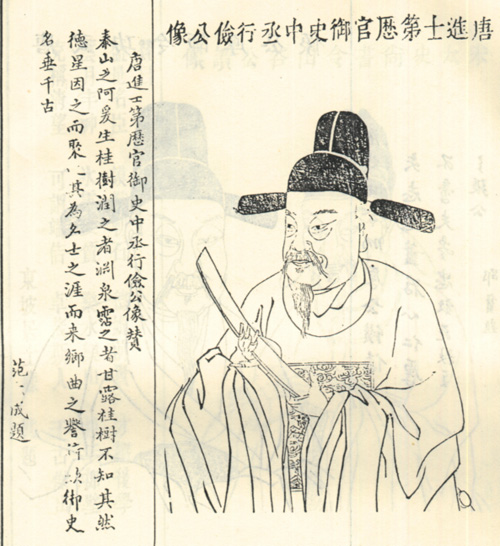 唐進士第歷官御史中丞行儉公像
唐進士第歷官御史中丞行儉公像贊
泰山之阿爰生桂樹潤之者淵泉霑之者甘露桂樹不知其然
德星因之而聚其為士之涯而来鄉曲之譽御史
名垂千古
范成題